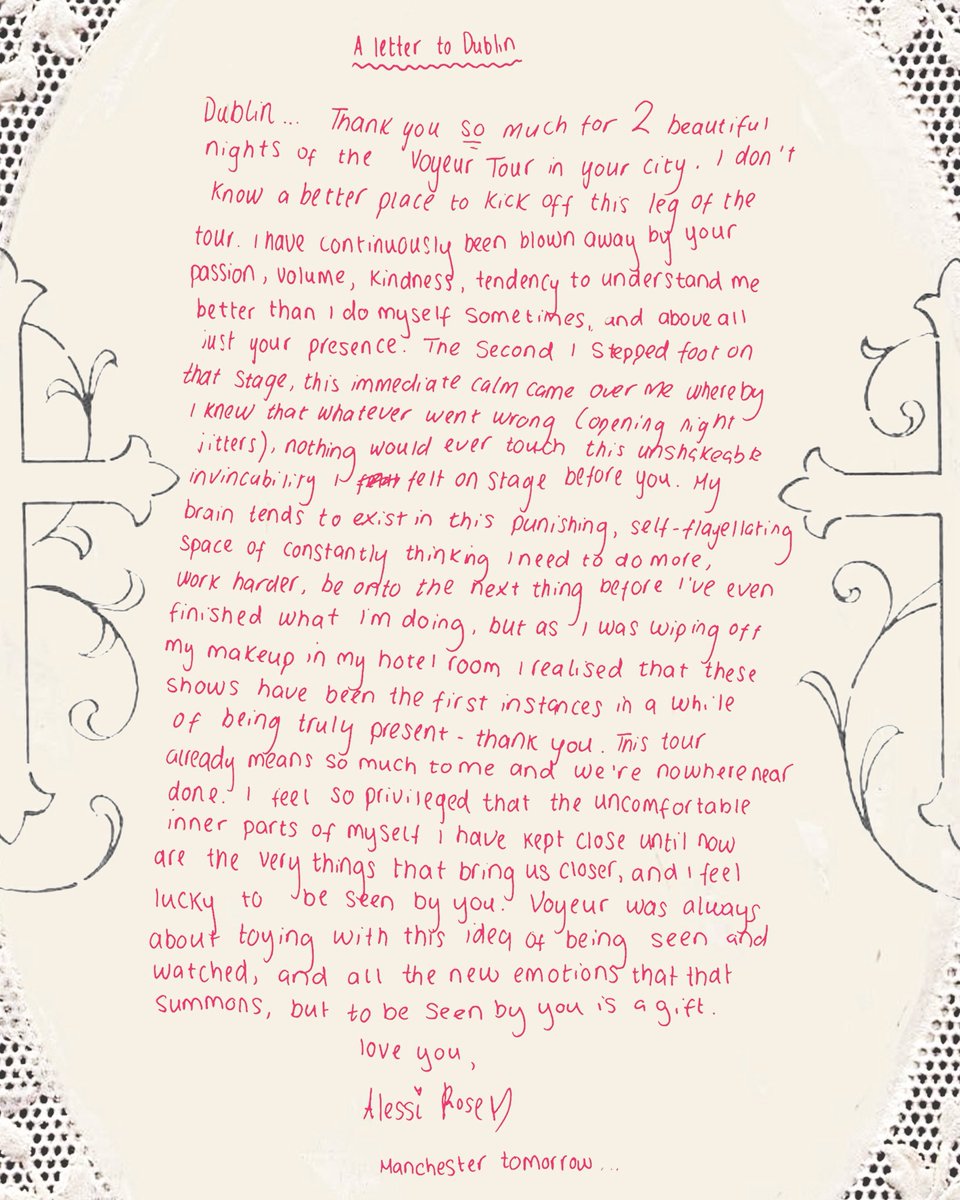 A letter to Dublin
Dublin... Thank you so much for 2 beautiful
nights of the Voyeur Tour in your city. I don't
know a better place to kick off this leg of the
tour. I have continuously been blown away by your
passion, volume, kindness, tendency to understand me
better than I do myself sometimes, and above all
just your presence. The second I stepped foot on
that stage, this immediate calm came over me whereby
I knew that whatever went wrong (opening night
jitters), nothing would ever touch this unshakeable
invincability I felt on stage before you. My
brain tends to exist in this punishing, self-flayellating
space of constantly thinking I need to do more,
work harder, be onto the next thing before I've even
finished what I'm doing, but as I was wiping off
my makeup in my hotel room I realised that these
shows have been the first instances in a while
of being truly present - thank you. This tour
already means so much to me and we're nowhere near
done. I feel so privileged that the uncomfortable
inner parts of myself I have kept close until now
are the very things that bring us closer, and I feel
lucky to be seen by you. Voyeur was always
about toying with this idea of being seen and
watched, and all the new emotions that that
summons, but to be seen by you is a gift.
love you,
Alessi Rose
Manchester tomorrow...